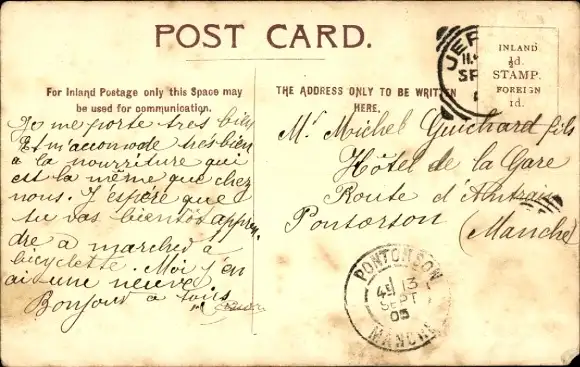 POST CARD.
For Inland Postage only this Space may
be used for communication.
THE ADDRESS ONLY TO BE WRITTEN
HERE.
INLAND
½d.
STAMP.
FOREIGN
1d.
JER
SE
Je me porte tres bien
Et m'accomode tres bien
a la nourriture qui
est la même que chez
nous. J'espére que
tu vas bientôt appren
dre a marcher à
bicyclette. Moi j'en
ai une neuve
Bonjour a tous
Mr Michel Guichard fils
Hôtel de la Gare
Route d'Antrain
Pontorson
(Manche)
PONTORSON
13
SEPT
05
MANCHE